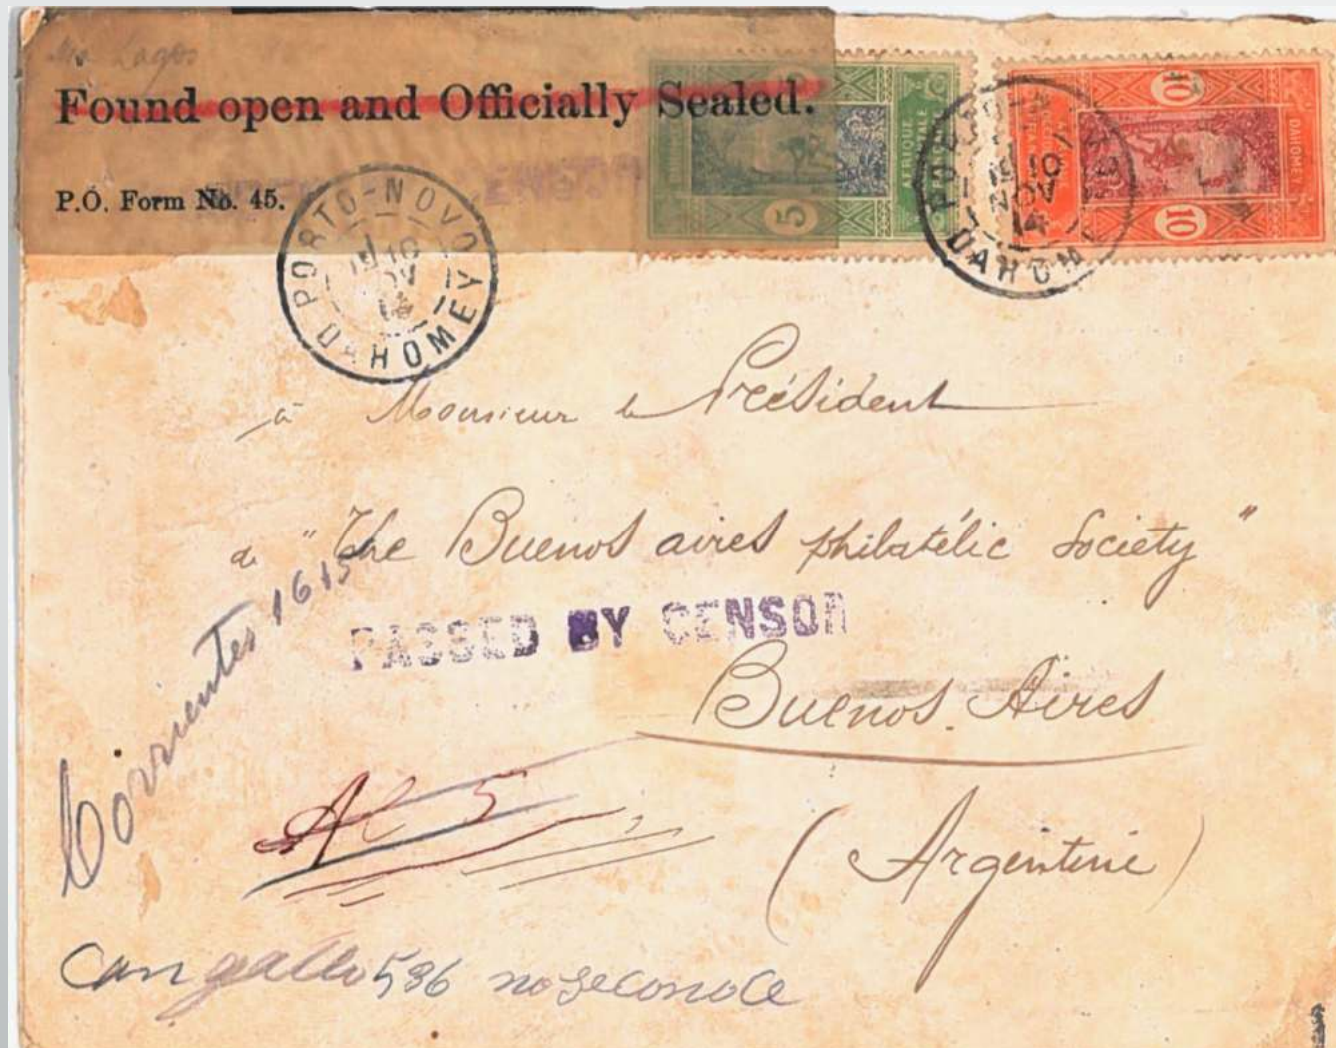 Via Lagos
Found open and Officially Sealed.
P.O. Form No. 45.
5
AFRIQUE
10
10
DAHOMEY
PORTO-NOVO
10
NOV
14
DAHOM
PORTO-NOVO
10
14
DAHOMEY
à Monsieur le Président
a "The Buenos aires philatélic Society"
Corrientes 1615
PASSED BY CENSOR
Buenos. Aires
(Argentine)
Cangallo 536 no se conoce